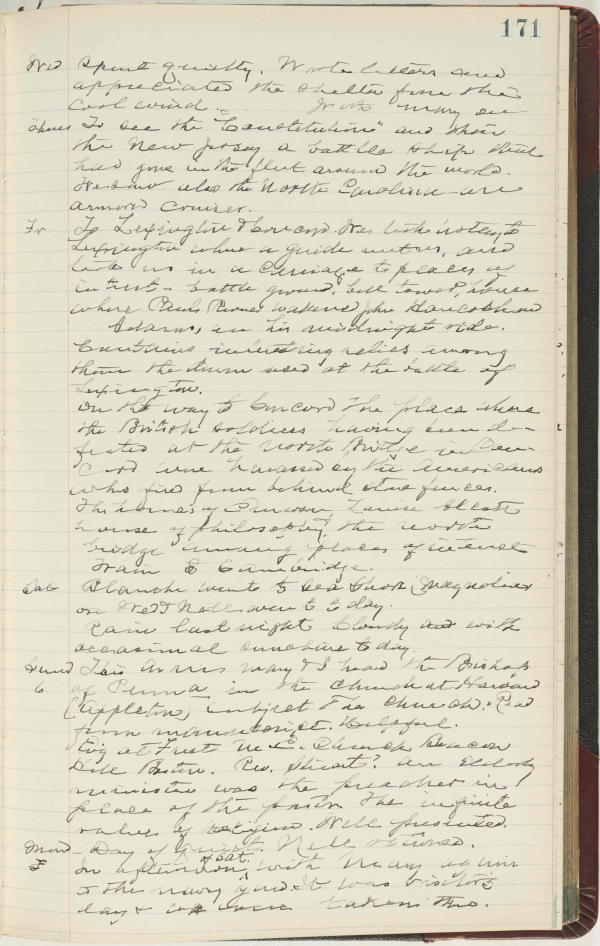 171
Wed Spent quietly. Wrote letters and
appreciated the shelter from the
cool wind. With Mary on
Thurs To see the "Constitution" and then
the New Jersey a battle ship that
had gone in the fleet around the world.
We saw also the North Carolina an
armored cruiser.
Fr To Lexington & Concord. We took trolley to
Lexington where a guide met us, and
took us in a carriage to places of
interest - battle ground, bell tower, house
where Paul Revere wakened John Hancock and
Adams, on his midnight ride.
Contains interesting relics among
them the drum used at the battle of
Lexington.
On the way to Concord the place where
the British soldiers having been de-
feated at the North Bridge in Con-
cord were harassed by the Americans
who fired from behind stone fences.
The homes of Emerson, Louise Alcott
house of philosophy, the north
bridge among places of interest
Train to Cambridge.
Sat Blanche went to sea shore (Magnolia)
on Wed & Nell went to day.
Rain last night cloudy with
occasional sunshine today.
Sund This A.M. Mary & I heard the Bishop
6 of Penna. in the church at Harvard
(Appleton) Subject The Church. Read
from manuscript. Helpful.
Evg at First M.E. Church Beacon
Hill Boston. Rev. Stuart? an elderly
minister was the preacher in
place of the pastor The infinite
values of religion. Well presented.
Mond - Day of quiet. Nell returned.
7 In afternoon of Sat. with Mary again
to the navy yard. It was visitors
day & were taken thro.